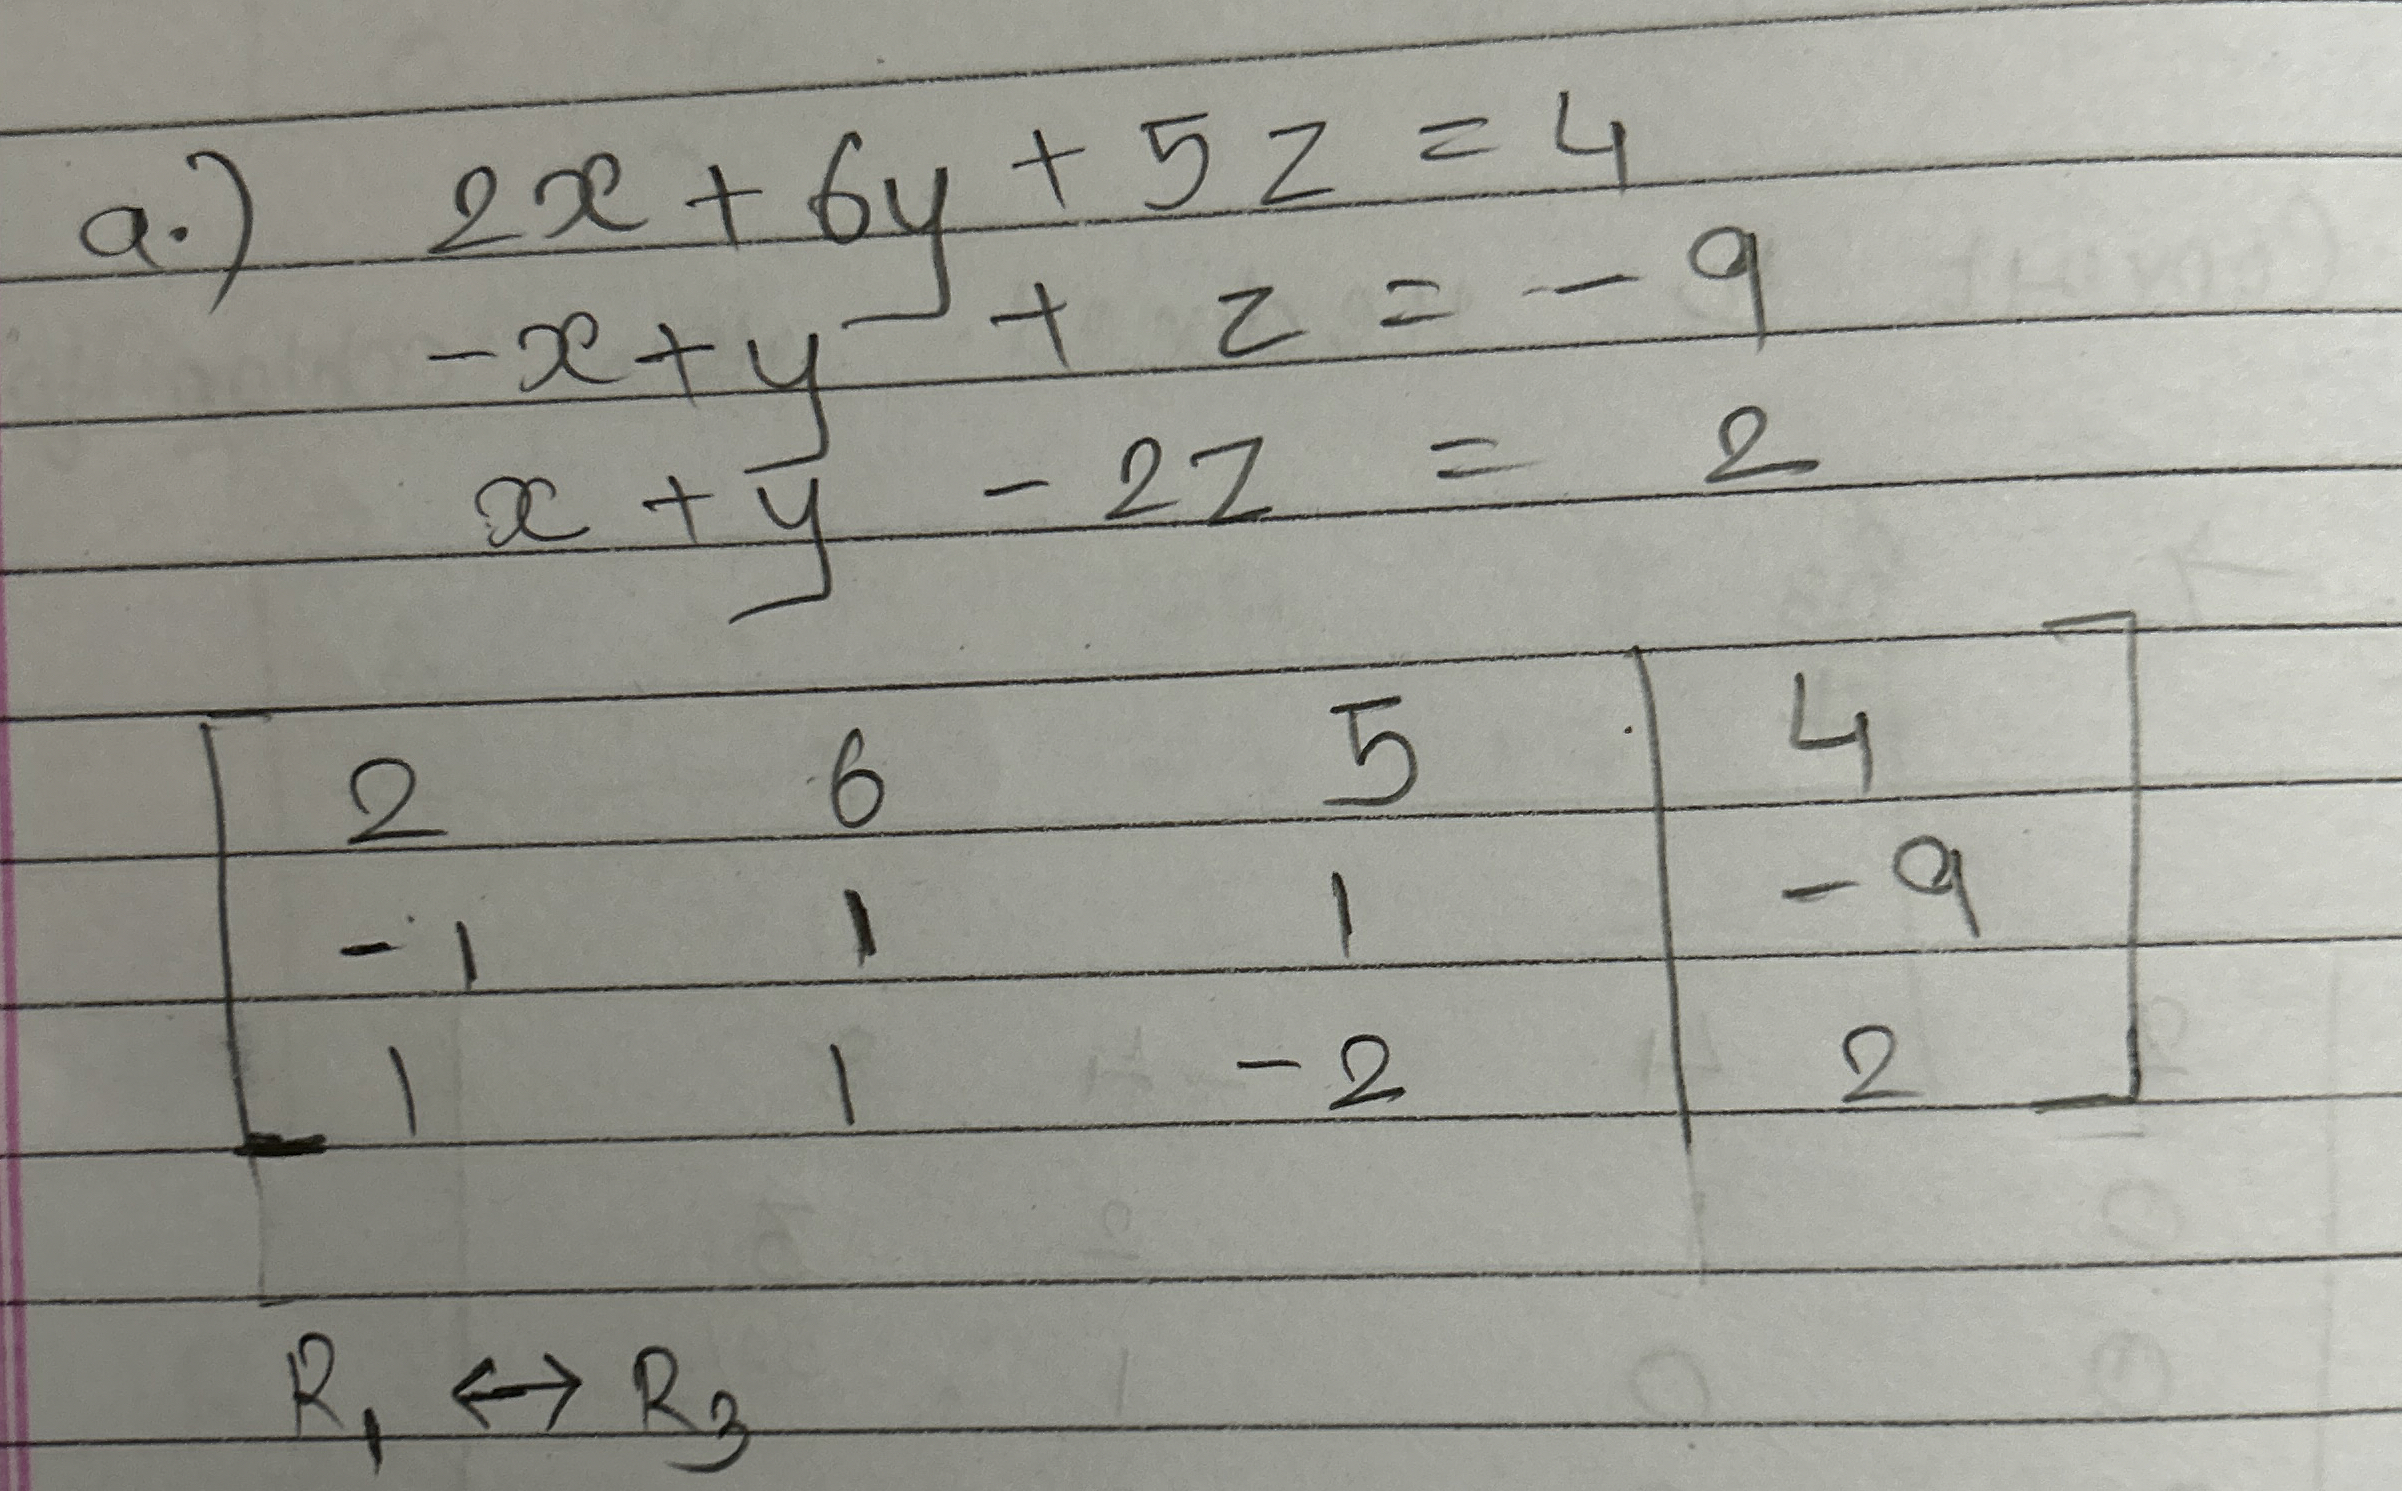 a.) 2x + 6y + 5z = 4
-x + y + z = -9
x + y - 2z = 2
2 6 5 4
-1 1 1 -9
1 1 -2 2
R₁ ↔ R₃